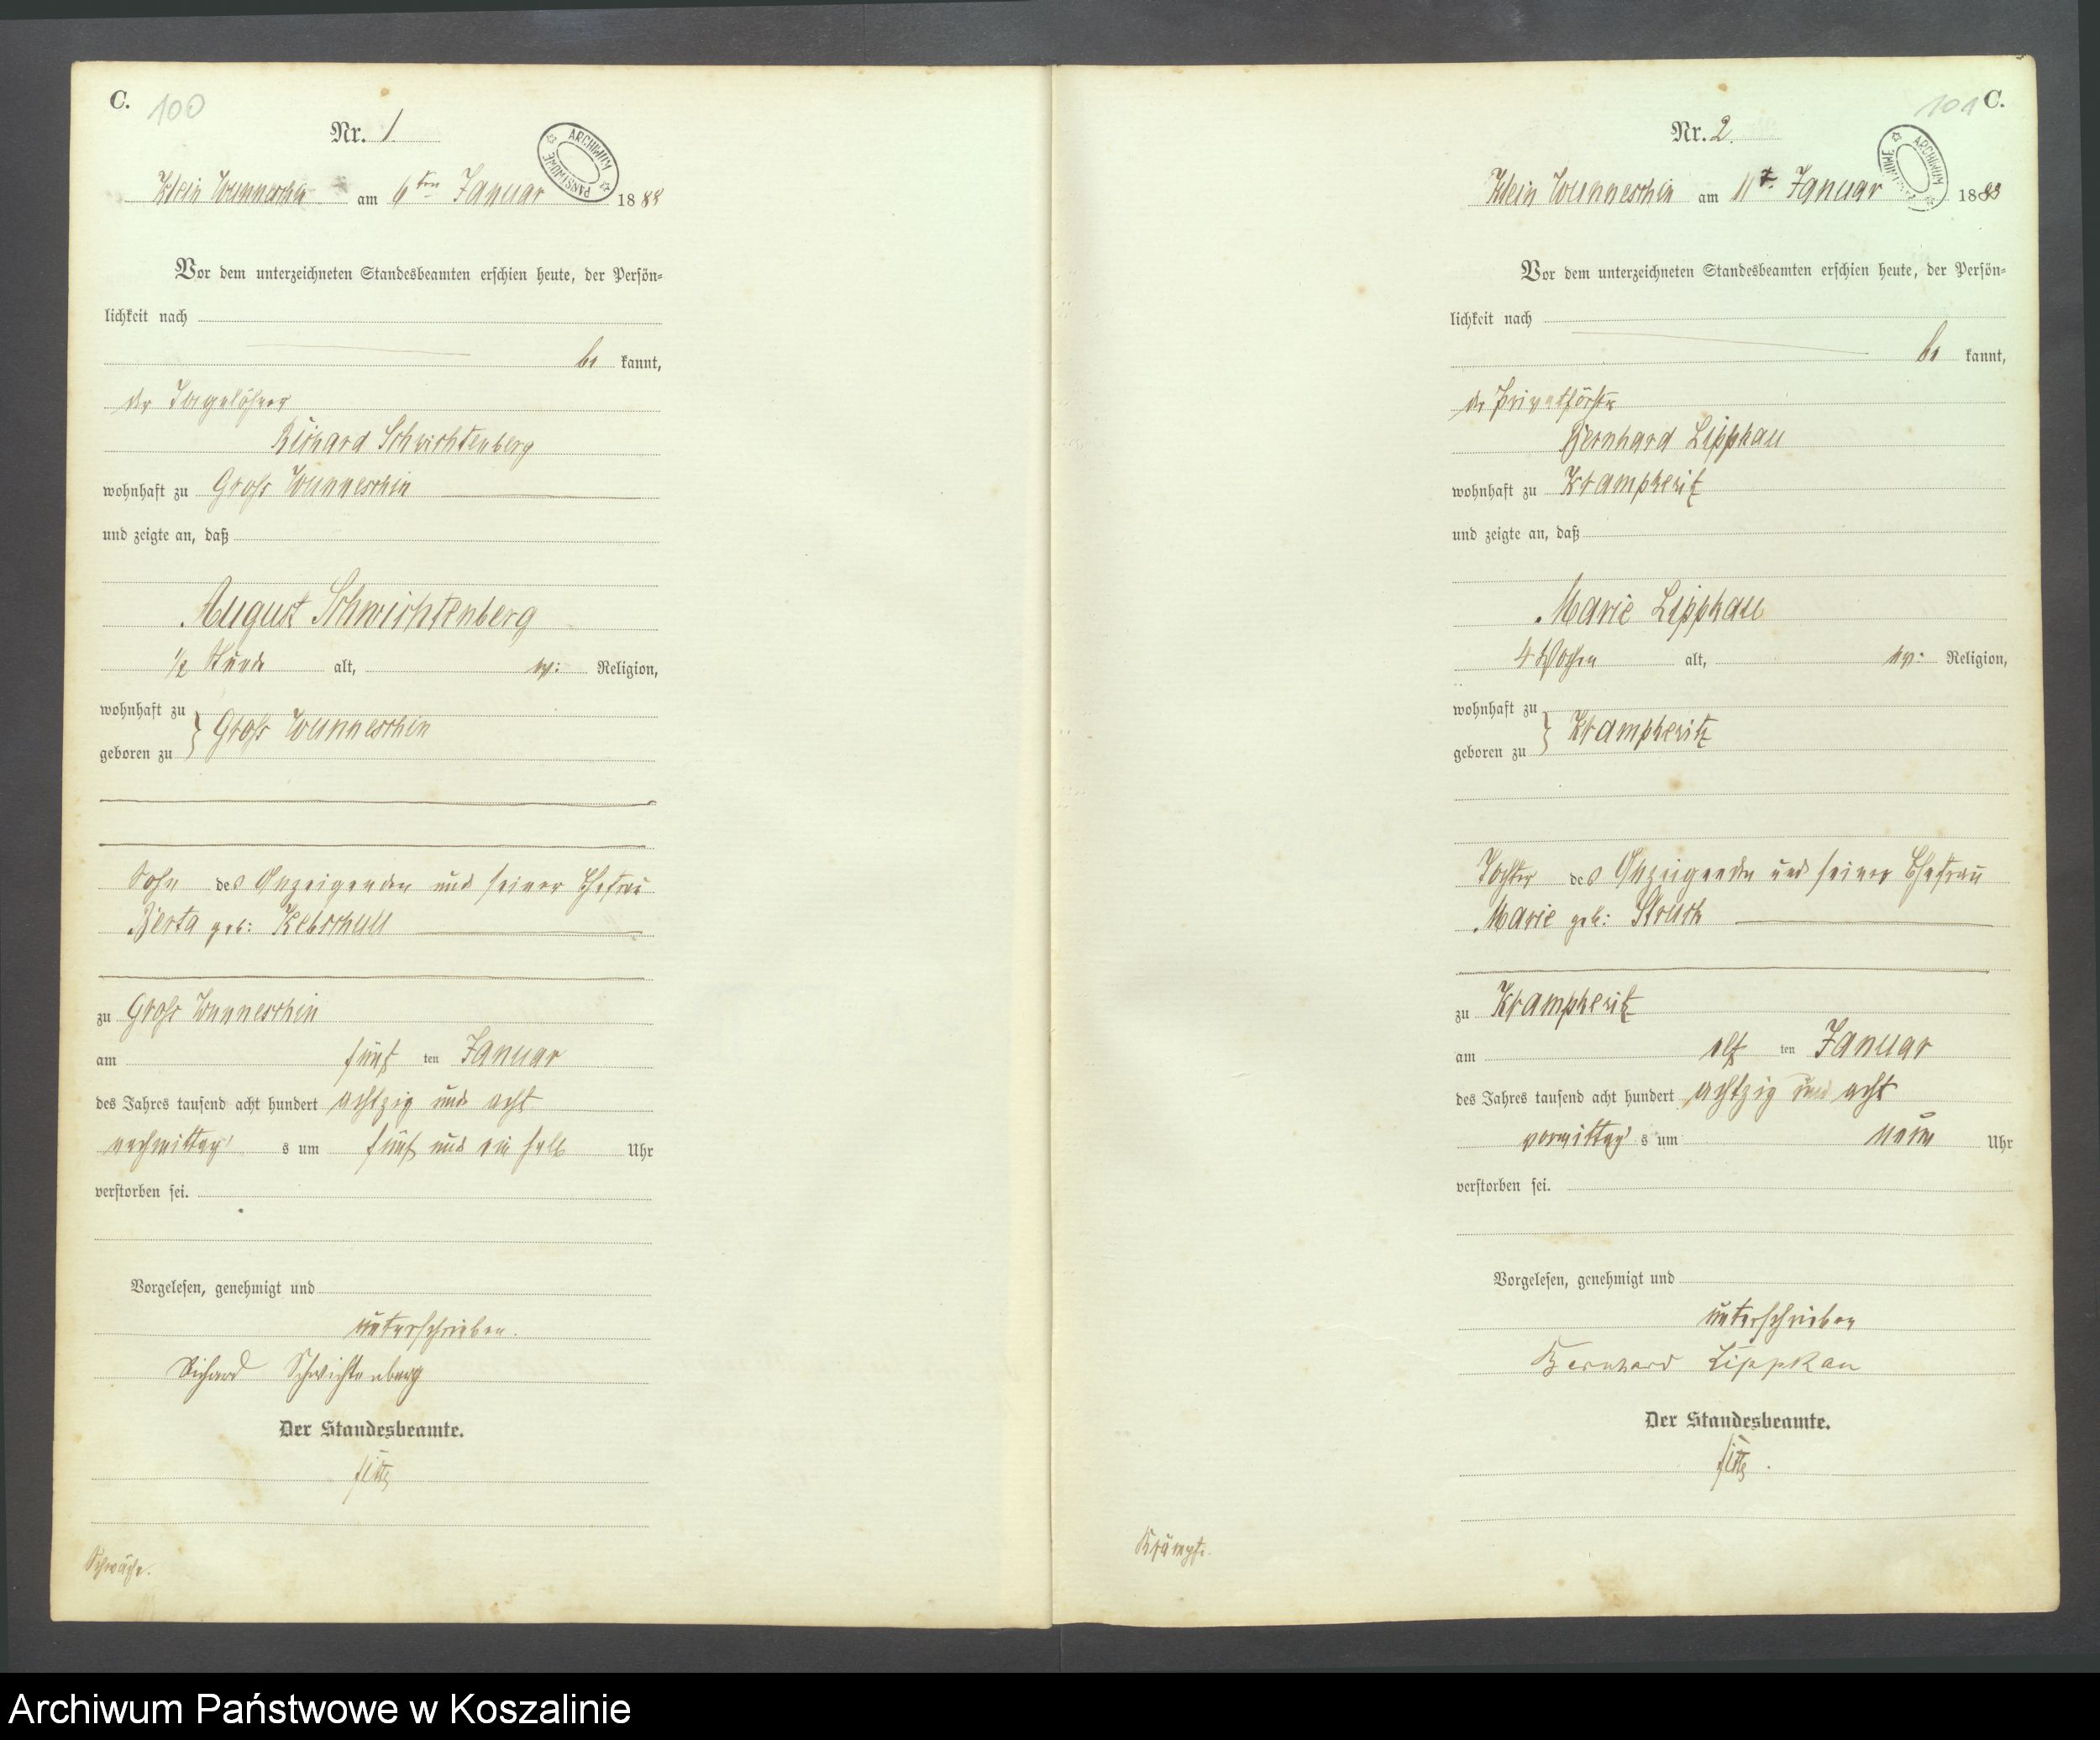 C. 100
Nr. 1.
ARCHIWUM PAŃSTWOWE
Klein Wunneschin am 6ten Januar 1888
Vor dem unterzeichneten Standesbeamten erschien heute, der Persön-
lichkeit nach
be kannt,
der Tagelöhner
Richard Schwichtenberg
wohnhaft zu Groß Wunneschin
und zeigte an, daß
August Schwichtenberg
1/2 Stunde alt, ev: Religion,
wohnhaft zu
geboren zu } Groß Wunneschin
Sohn des Anzeigenden und seiner Ehefrau
Berta geb: Kebschull
zu Groß Wunneschin
am fünf ten Januar
des Jahres tausend acht hundert achtzig und acht
nachmittag s um fünf und ein halb Uhr
verstorben sei.
Vorgelesen, genehmigt und
unterschrieben.
Richard Schwichtenberg
Der Standesbeamte.
Schwäche.
101 C.
Nr. 2.
ARCHIWUM PAŃSTWOWE
Klein Wunneschin am 11t. Januar 1888
Vor dem unterzeichneten Standesbeamten erschien heute, der Persön-
lichkeit nach
be kannt,
der Privatförster
Bernhard Lippkau
wohnhaft zu Krampkewitz
und zeigte an, daß
Marie Lippkau
4 Wochen alt, ev: Religion,
wohnhaft zu
geboren zu } Krampkewitz
Tochter des Anzeigenden und seiner Ehefrau
Marie geb: Struck
zu Krampkewitz
am elf ten Januar
des Jahres tausend acht hundert achtzig und acht
vormittag s um neun Uhr
verstorben sei.
Vorgelesen, genehmigt und
unterschrieben
Bernhard Lippkau
Der Standesbeamte.
Krämpfe.
Archiwum Państwowe w Koszalinie